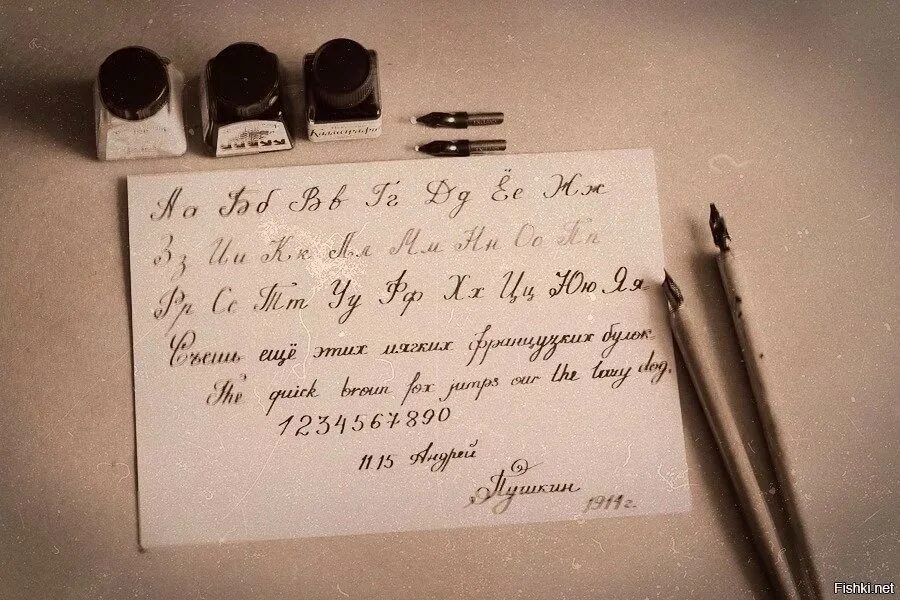 Каллиграфъ
Аа Бб Вв Гг Дд Ёе Жж
Зз Ии Кк Лл Мм Нн Оо Пп
Рр Сс Тт Уу Фф Хх Цц Юю Яя
Съешь ещё этих мягких французких булок
The quick broun fox jumps our the lazy dog.
1234567890
11.15 Андрей
Пушкин
1911г.
Fishki.net